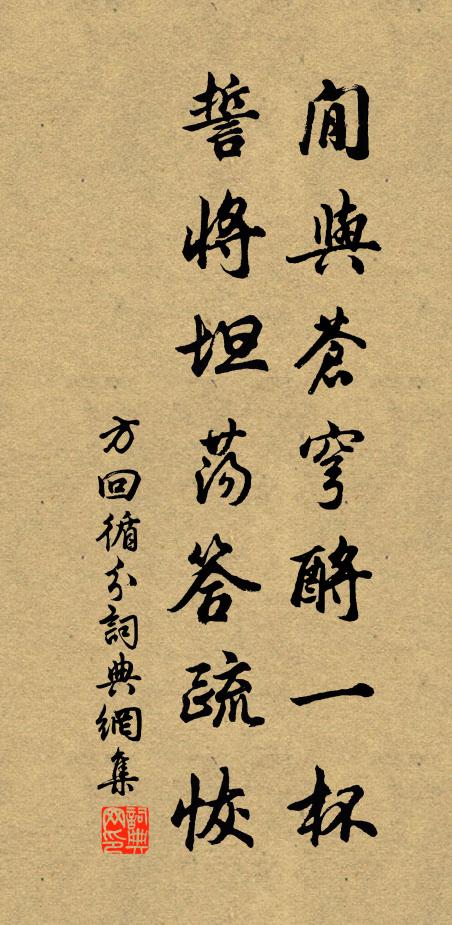 閒與蒼穹酹一杯
誓將坦蕩答疏恢
方回循分詞典網集
詞典网印